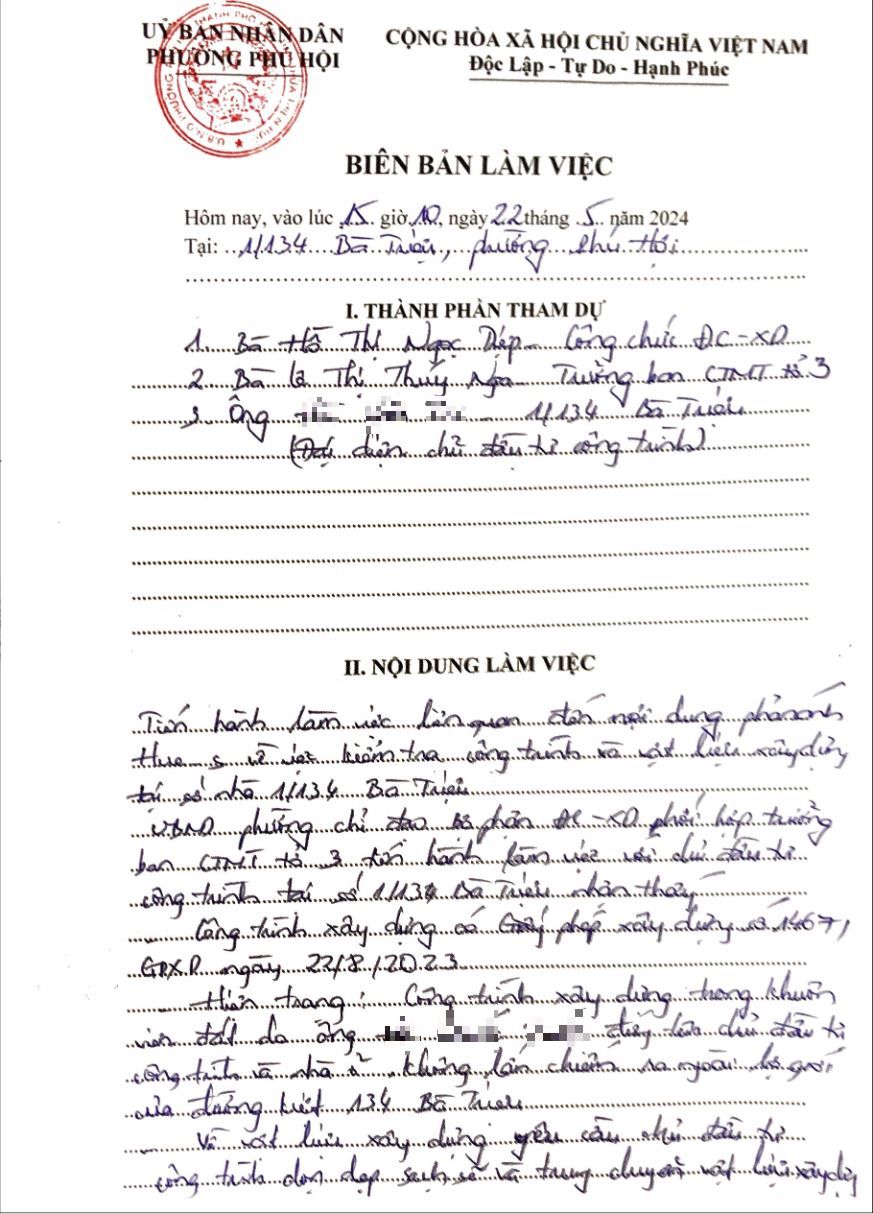 UỶ BAN NHÂN DÂN
PHƯỜNG PHÚ HỘI
CỘNG HÒA XÃ HỘI CHỦ NGHĨA VIỆT NAM
Độc Lập - Tự Do - Hạnh Phúc
BIÊN BẢN LÀM VIỆC
Hôm nay, vào lúc 15 giờ 10, ngày 22 tháng 5 năm 2024
Tại: 1/134 Bà Triệu, phường Phú Hội
I. THÀNH PHẦN THAM DỰ
1. Bà Hồ Thị Ngọc Diệp - Công chức ĐC-XD
2. Bà Lê Thị Thuý Nga - Trưởng ban CTMT tổ 3
3. Ông - 1/134 Bà Triệu
(Đại diện chủ đầu tư công trình)
II. NỘI DUNG LÀM VIỆC
Tiến hành làm việc liên quan đến nội dung phản ánh
Hue_s về việc kiểm tra công trình và vật liệu xây dựng
tại số nhà 1/134 Bà Triệu
UBND phường chỉ đạo bộ phận ĐC-XD phối hợp trưởng
ban CTMT tổ 3 tiến hành làm việc với chủ đầu tư
công trình tại số 1/134 Bà Triệu nhận thấy
Công trình xây dựng có Giấy phép xây dựng số 1467/
GPXD ngày 22/8/2023
Hiện trạng: Công trình xây dựng trong khuôn
viên đất do ông đứng tên chủ đầu tư
công trình và nhà ở không lấn chiếm ra ngoài lộ giới
của đường kiệt 134 Bà Triệu
Về vật liệu xây dựng yêu cầu chủ đầu tư
công trình dọn dẹp sạch sẽ và trung chuyển vật liệu xây dựng